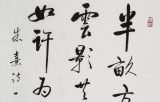 半畝方
雲影共
如許為
朱熹詩一